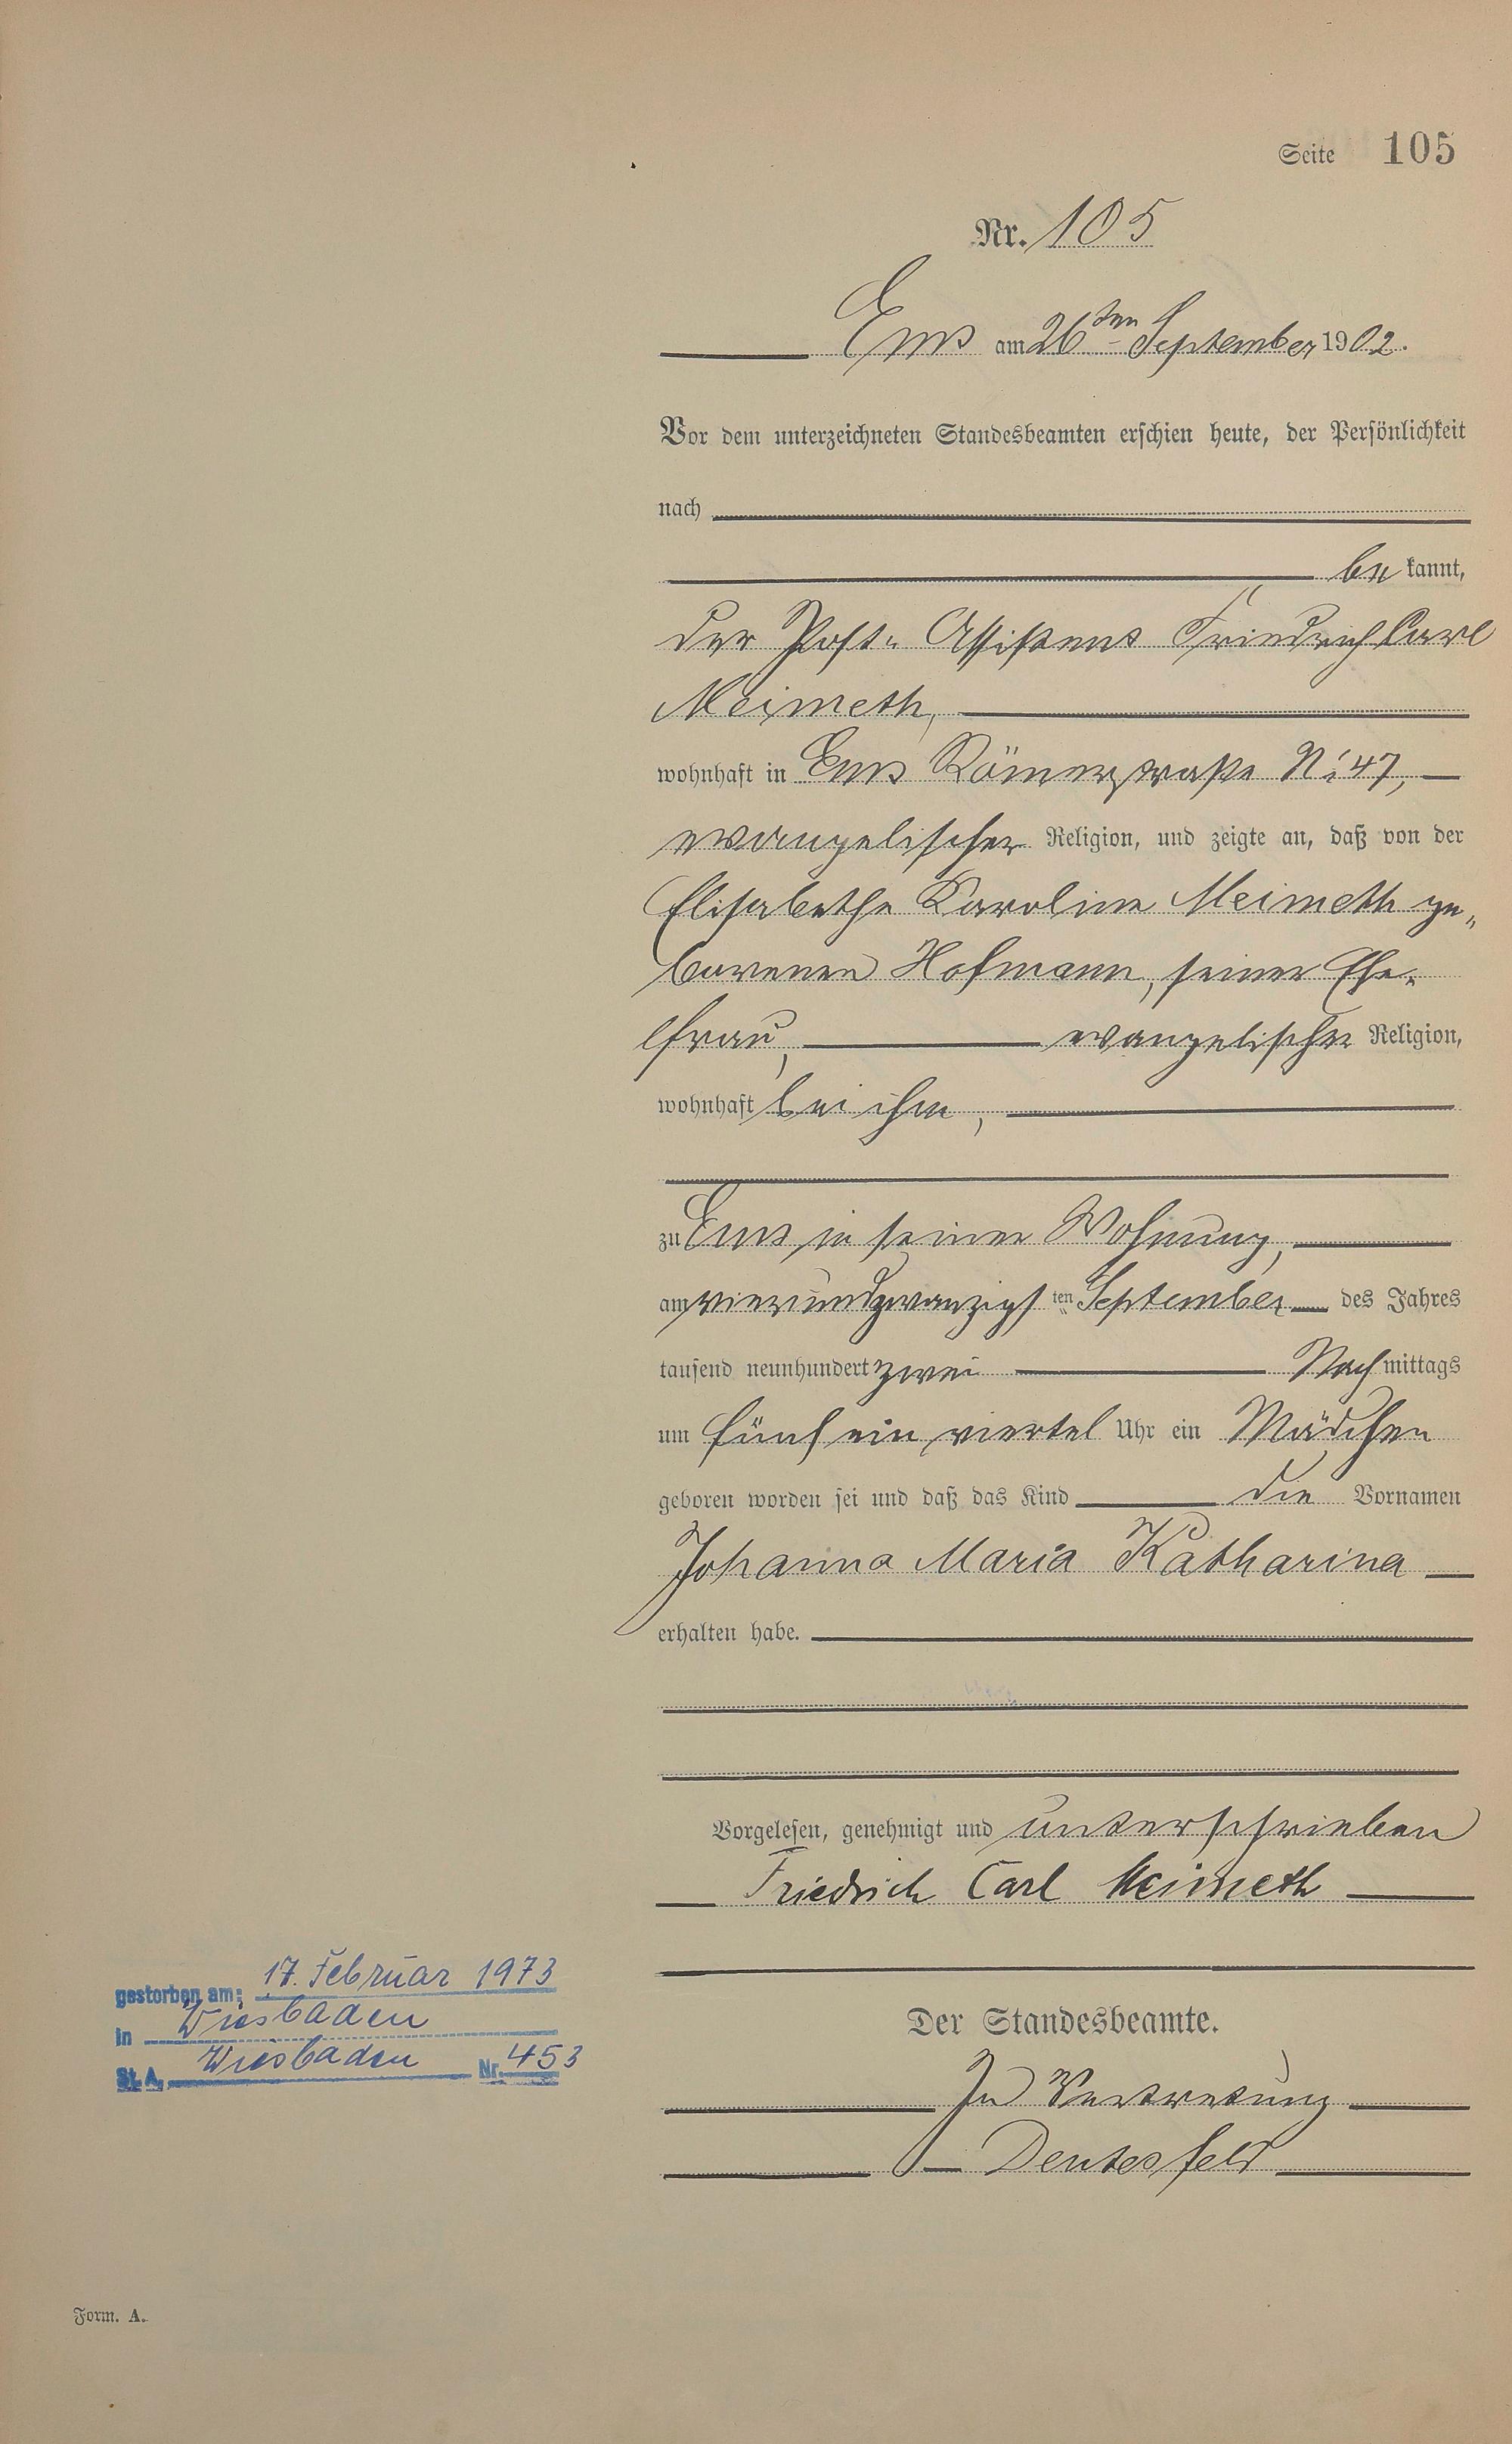 Seite 105
Nr. 105
Ems am 26ten September 1902.
Vor dem unterzeichneten Standesbeamten erschien heute, der Persönlichkeit
nach
bekannt,
der Post-Assistent Friedrich Carl
Meimeth,
wohnhaft in Ems Römerstraße No 47,
evangelischer Religion, und zeigte an, daß von der
Elisabethe Karoline Meimeth ge-
borenen Hofmann, seiner Ehe-
frau, evangelischer Religion,
wohnhaft bei ihm,
zu Ems in seiner Wohnung,
am vierundzwanzigsten September des Jahres
tausend neunhundert zwei Nachmittags
um fünf ein viertel Uhr ein Mädchen
geboren worden sei und daß das Kind die Vornamen
Johanna Maria Katharina
erhalten habe.
Vorgelesen, genehmigt und unterschrieben
Friedrich Carl Meimeth
gestorben am: 17. Februar 1973
in Wiesbaden
St. A. Wiesbaden Nr. 453
Der Standesbeamte.
In Vertretung
Deutesfeld
Form. A.